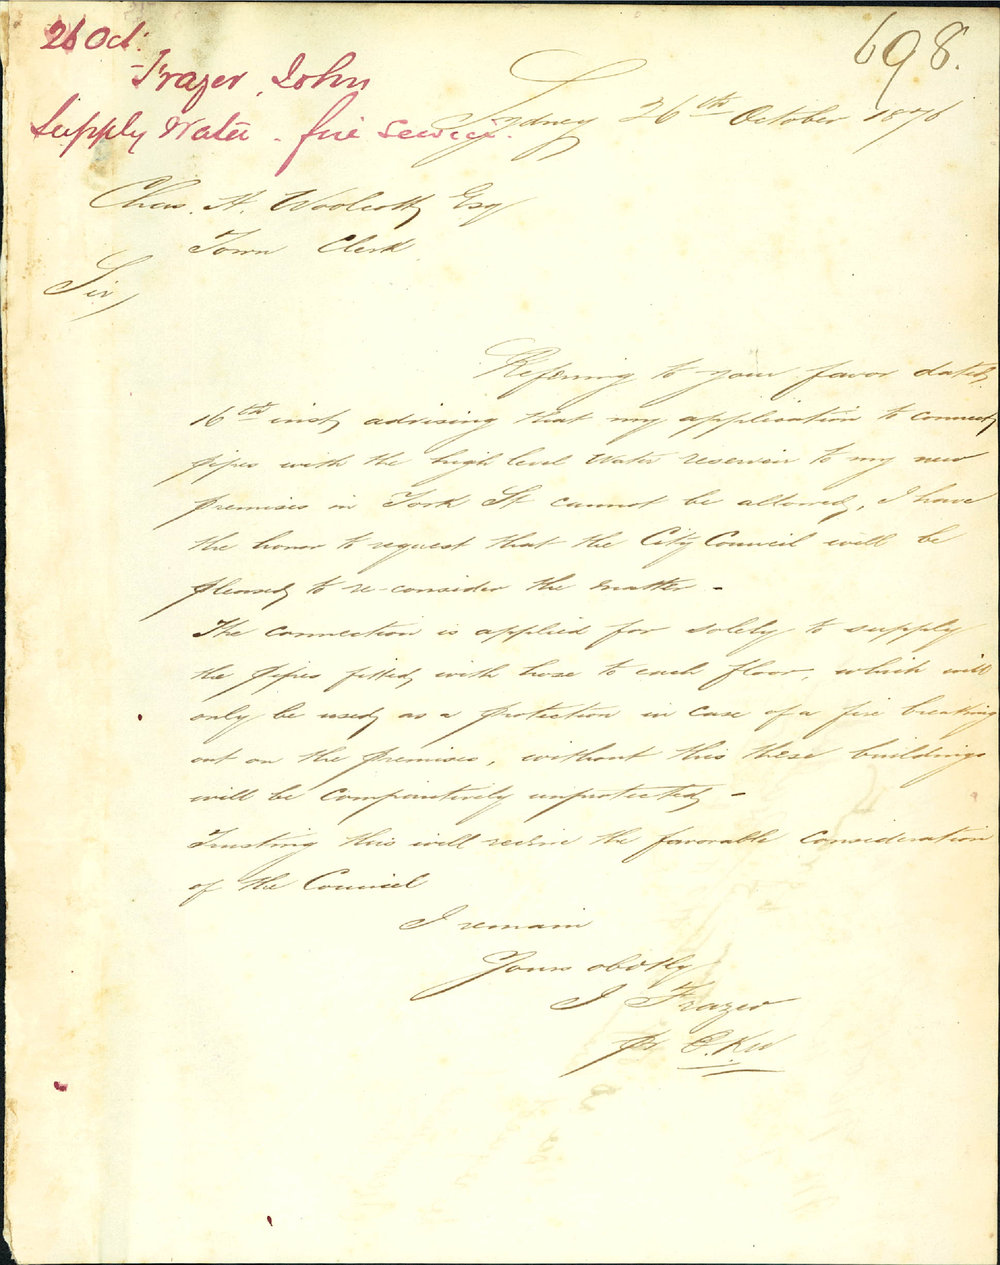 26 Oct:
Frazer, John
Supply Water - fire service.
698.
Sydney 26th October 1876
Chas. H. Woolcott Esq
Town Clerk
Sir,
Referring to your favor dated
16th inst advising that my application to connect
pipes with the high level Water reservoir to my new
premises in York St cannot be allowed, I have
the honor to request that the City Council will be
pleased to re-consider the matter -
The connection is applied for solely to supply
the pipes fitted with hose to each floor, which will
only be used as a protection in case of a fire breaking
out on the premises, without this these buildings
will be comparitively unprotected -
Trusting this will receive the favorable consideration
of the Council
I remain
Yours obdtly
J Frazer
pr